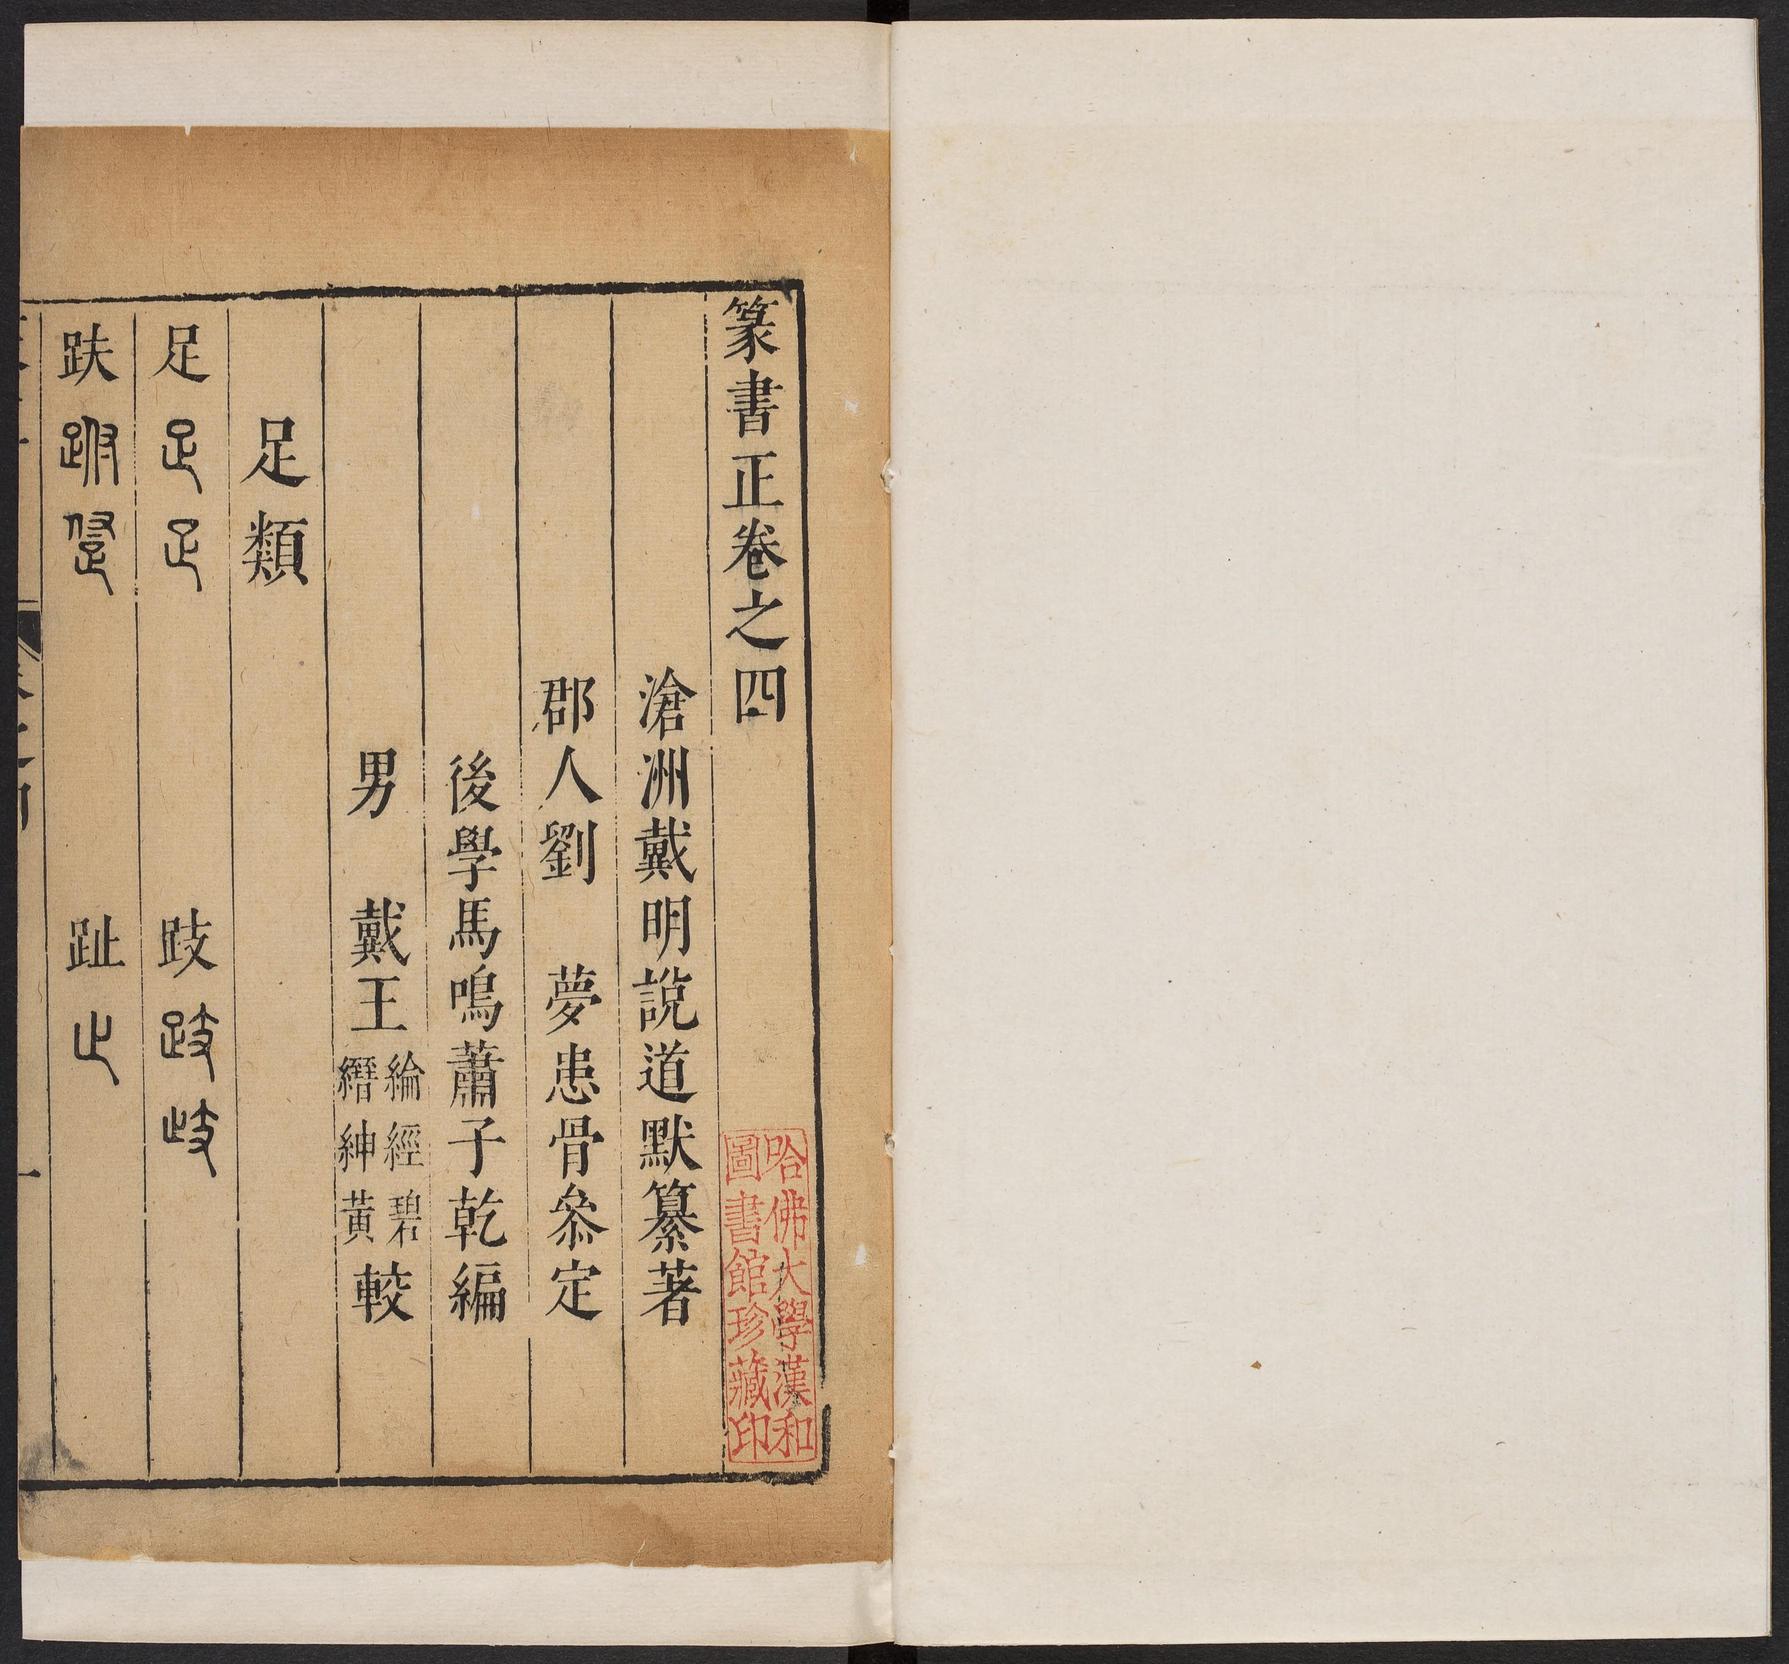 篆書正卷之四
滄洲戴明說道默纂著
郡人劉 夢患骨叅定
後學馬鳴蕭子乾編
男 戴王綸經碧
縉紳黃較
足類
足 跂
趺 趾
哈佛大學漢和
圖書館珍藏印